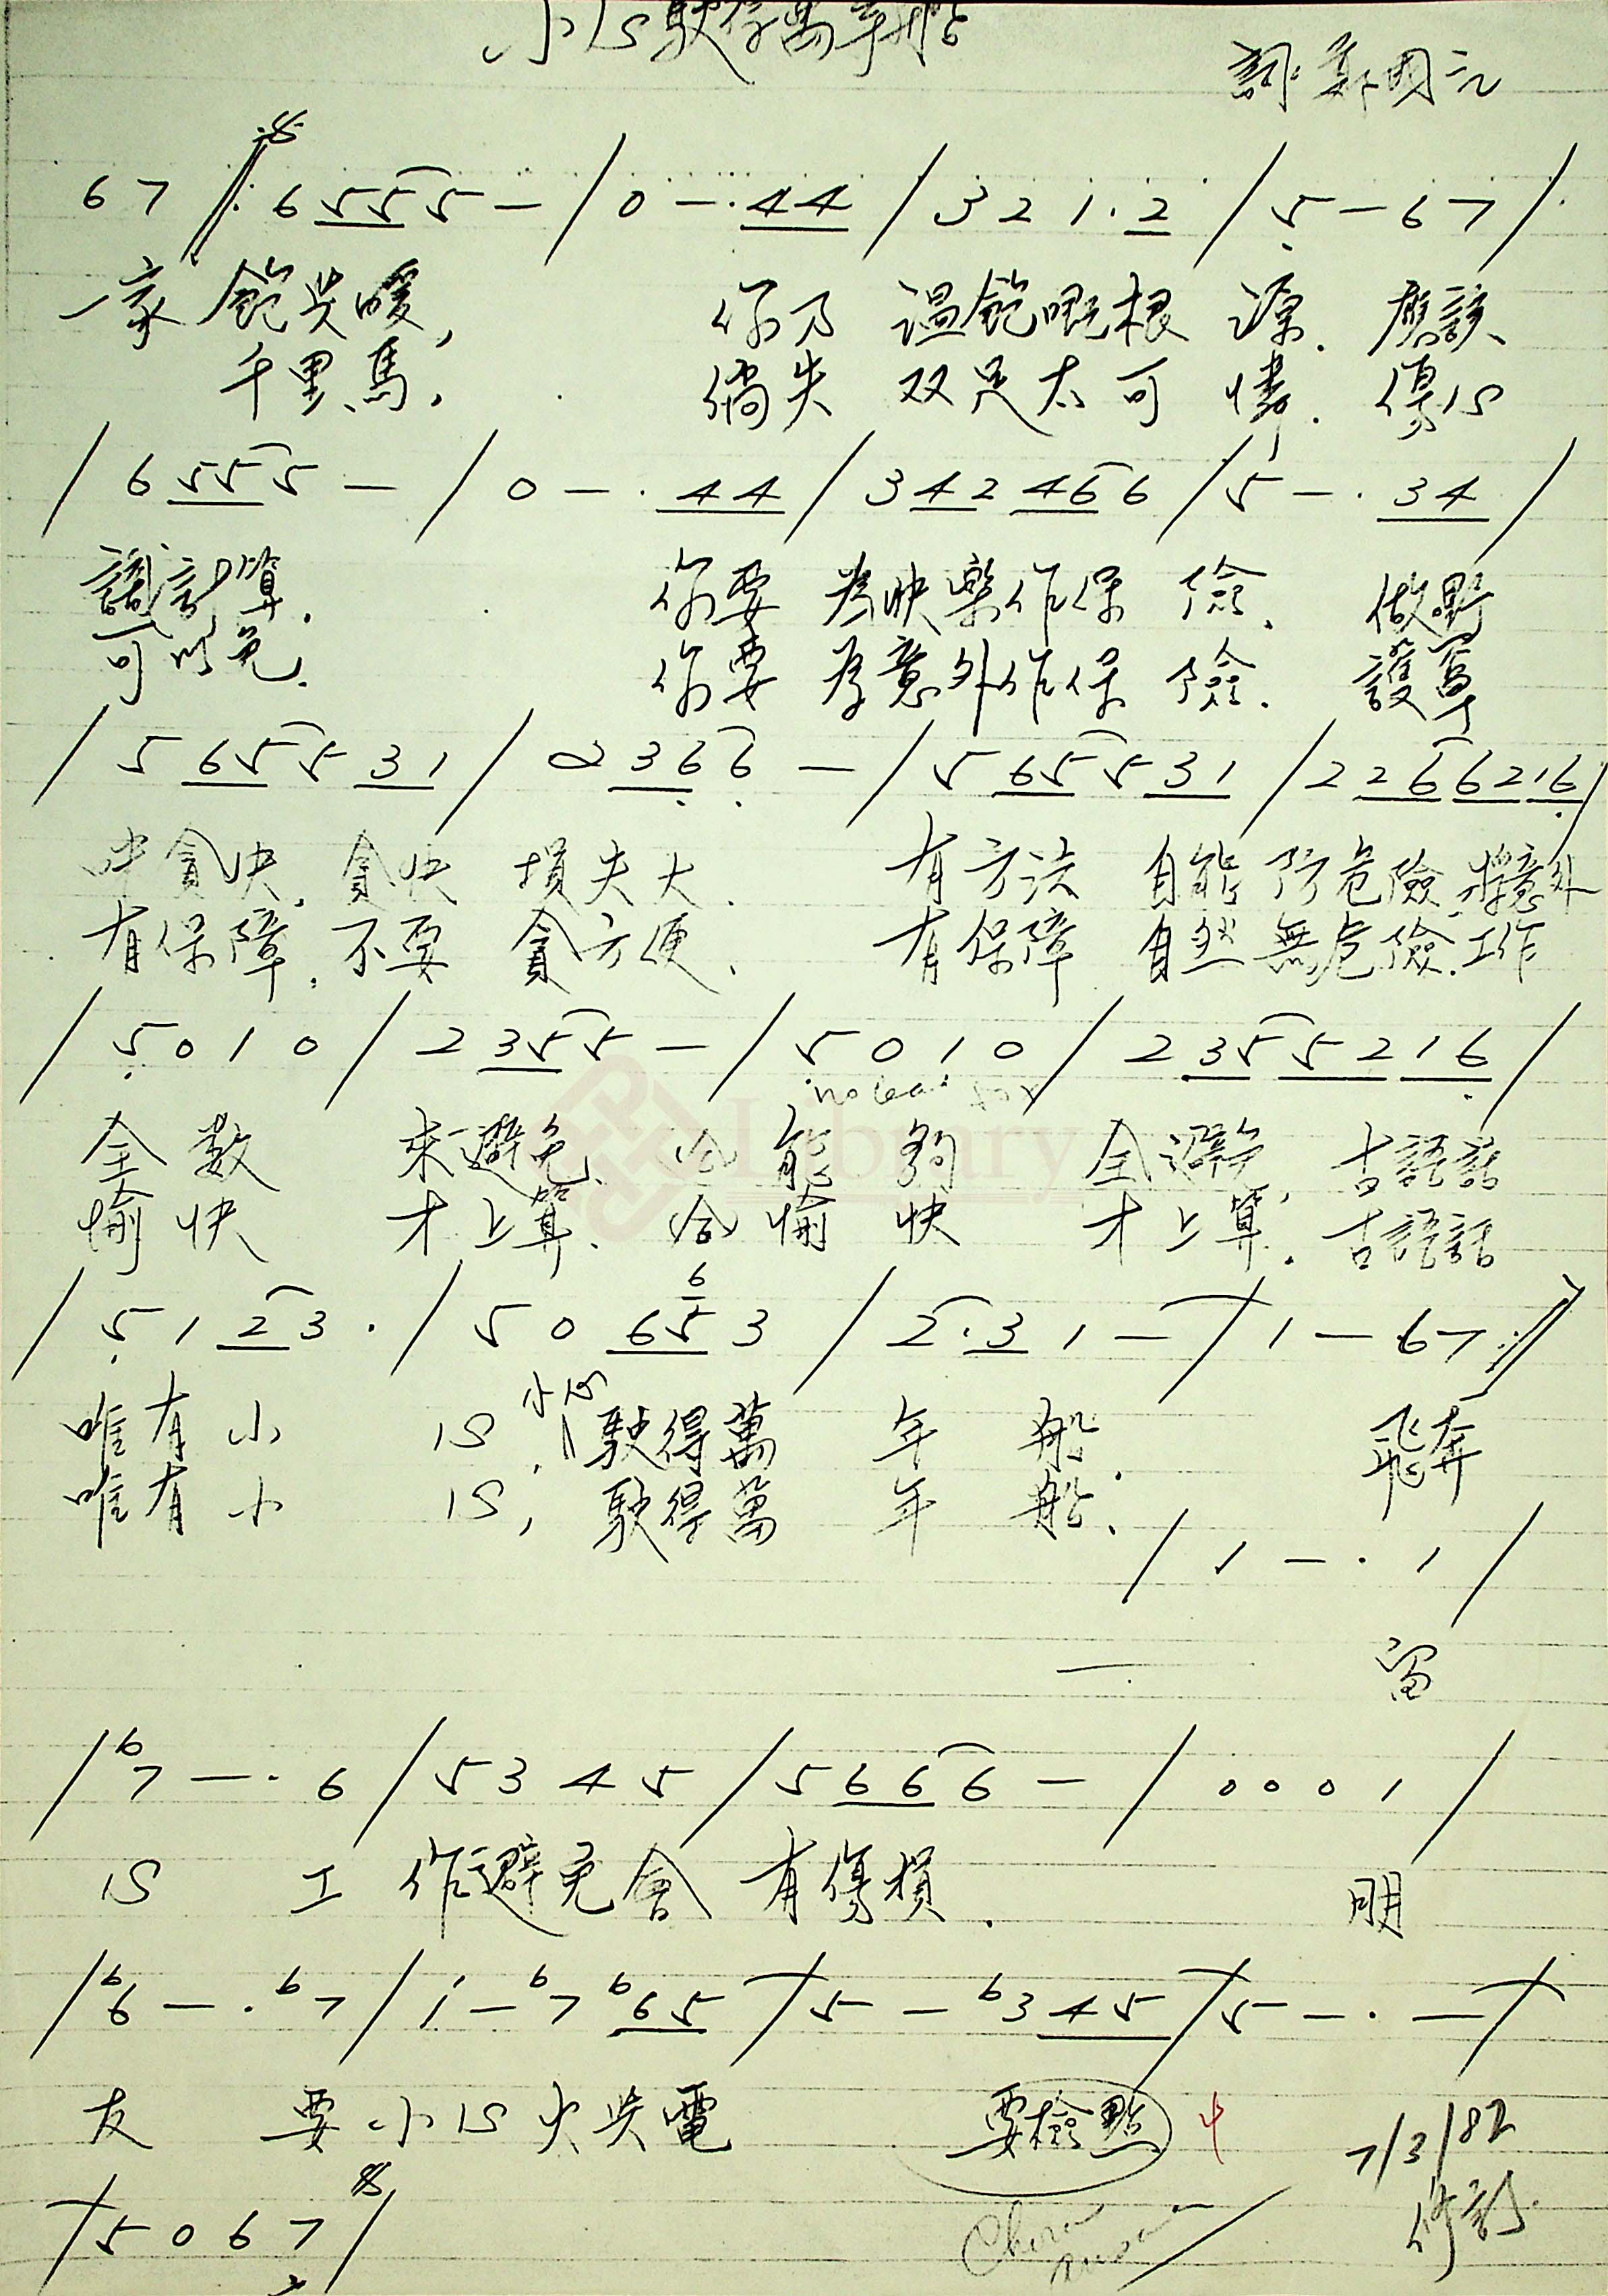 小心駛得萬年船
詞: 鄭國江
6 7 /: 6 5 5 5 - / 0 - . 4 4 / 3 2 1 . 2 / 5 - 6 7 /
一家飽共暖, 你乃溫飽嘅根源. 應該
千里馬, 倘失双足太可憐. 傷心
/ 6 5 5 5 - / 0 - . 4 4 / 3 4 2 4 6 6 / 5 - . 3 4 /
識計算. 你要為快樂作保險. 做野
可以免. 你要為意外作保險. 護罩
/ 5 6 5 5 3 1 / 2 3 6 6 - / 5 6 5 5 3 1 / 2 2 6 6 2 1 6 /
咪貪快, 貪快損失大. 有方法自能防危險. 將意外
有保障, 不要貪方便. 有保障自然無危險. 工作
/ 5 0 1 0 / 2 3 5 5 - / 5 0 1 0 / 2 3 5 5 2 1 6 /
Library
全數來避免. 必能夠全避免, 古語話
愉快才上算. 必愉快才上算. 古語話
6
/ 5 1 2 3 . / 5 0 6 5 3 / 2 . 3 1 - / 1 - 6 7 :/
小心
唯有小心, 駛得萬年船. 飛奔
唯有小心, 駛得萬年船.
/ 1 - . 1 /
留
/ b7 - . 6 / 5 3 4 5 / 5 6 6 6 - / 0 0 0 1 /
心工作避免會有傷損. 明
/ b6 - . b7 / i - b7 b6 5 / 5 - b3 4 5 / 5 - . - /
友要小心火與電 要檢點
7/3/82
修訂.
/ 5 0 6 7 /